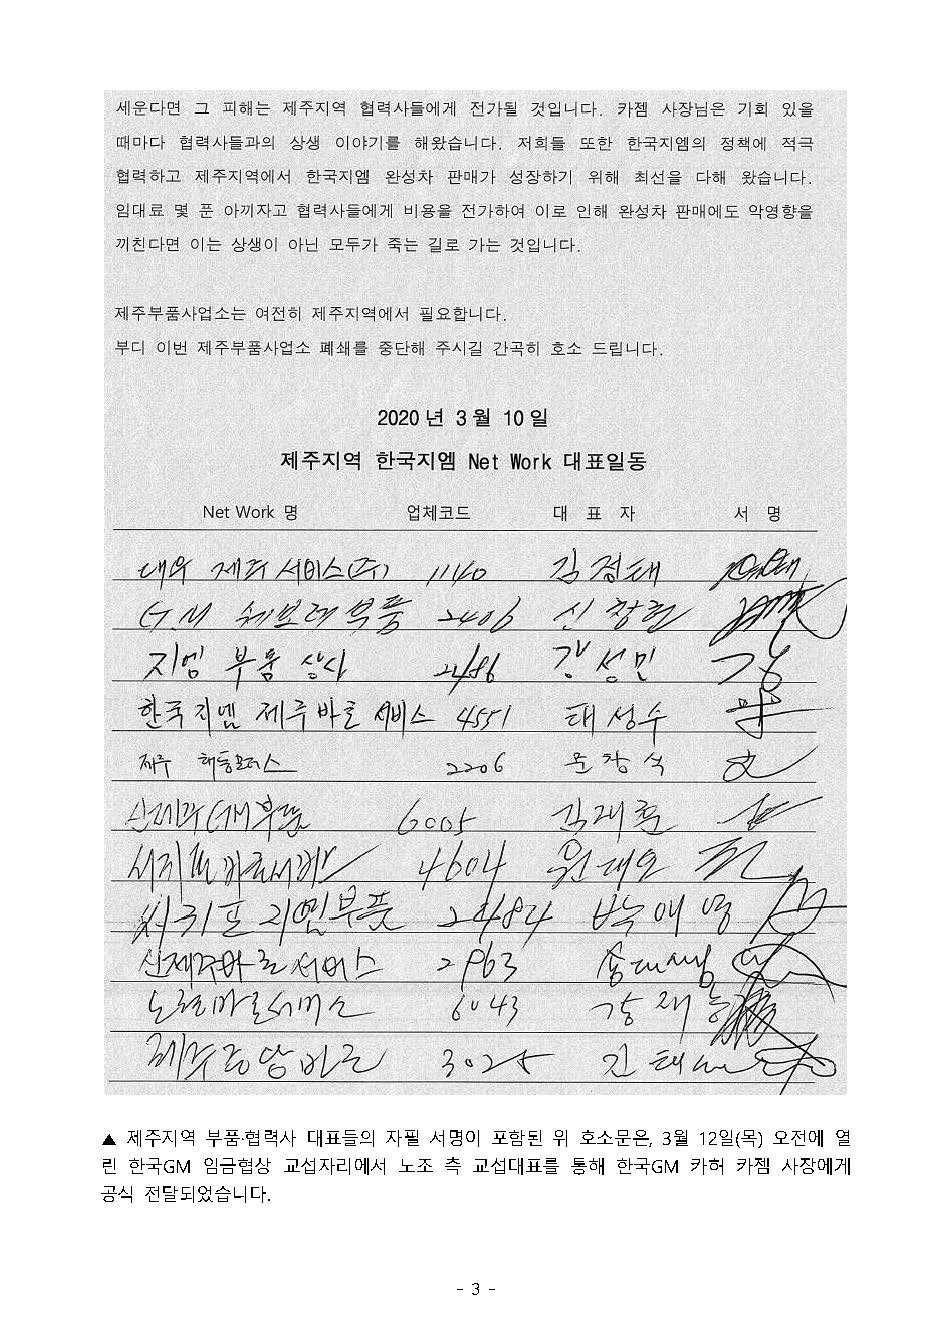 세운다면 그 피해는 제주지역 협력사들에게 전가될 것입니다. 카젬 사장님은 기회 있을
때마다 협력사들과의 상생 이야기를 해왔습니다. 저희들 또한 한국지엠의 정책에 적극
협력하고 제주지역에서 한국지엠 완성차 판매가 성장하기 위해 최선을 다해 왔습니다.
임대료 몇 푼 아끼자고 협력사들에게 비용을 전가하여 이로 인해 완성차 판매에도 악영향을
끼친다면 이는 상생이 아닌 모두가 죽는 길로 가는 것입니다.
제주부품사업소는 여전히 제주지역에서 필요합니다.
부디 이번 제주부품사업소 폐쇄를 중단해 주시길 간곡히 호소 드립니다.
2020년 3월 10일
제주지역 한국지엠 Net Work 대표일동
Net Work 명 업체코드 대 표 자 서 명
대우 제주서비스(주) 1140 김정태
G.M 쉐보레부품 2406 신창련
지엠 부품 상사 2486 강성민
한국지엠 제주바로서비스 4551 태성수
제주 해동모터스 2206 문창석
신제주GM부품 6005 김재훈
4604 원대오
서귀포지엠부품 2484 박애영
신제주바로서비스 2963
노형바로서비스 6043 강재
제주중앙바로 3025 김태
▲ 제주지역 부품·협력사 대표들의 자필 서명이 포함된 위 호소문은, 3월 12일(목) 오전에 열
린 한국GM 임금협상 교섭자리에서 노조 측 교섭대표를 통해 한국GM 카허 카젬 사장에게
공식 전달되었습니다.
- 3 -